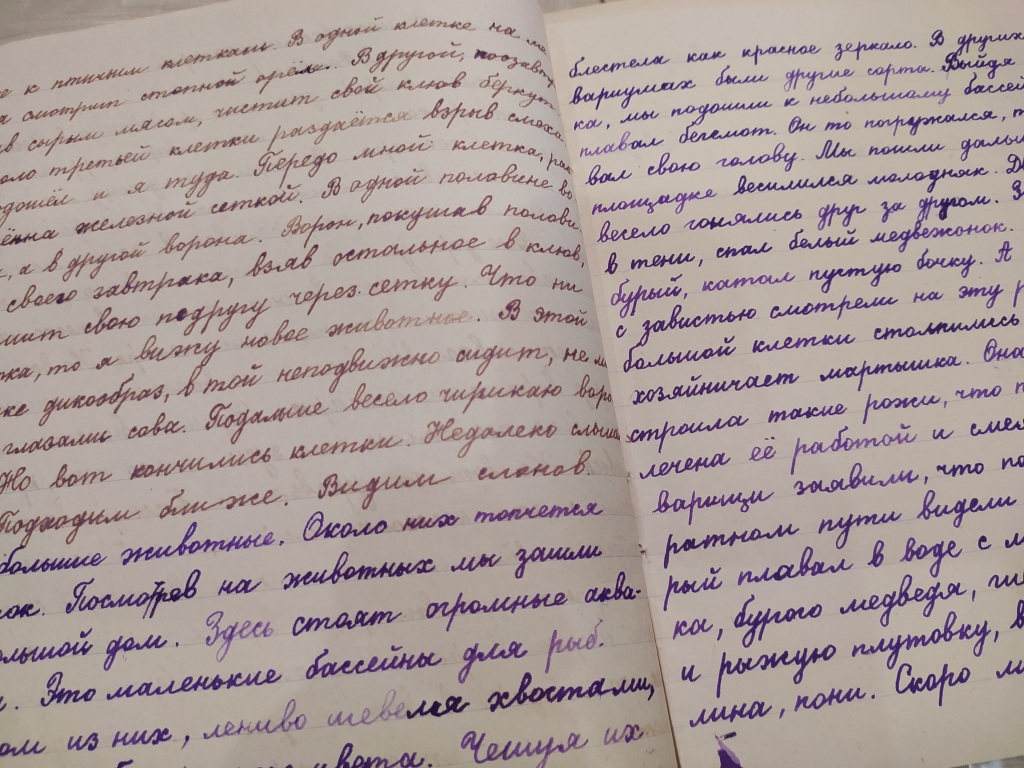 е к птичьим клеткам. В одной клетке на ме
а смотрит степной орёл. В другой, позавтр
ав сырым мясом, чистит свой клюв беркут
оло третьей клетки раздаётся взрыв смеха.
дошёл и я туда. Передо мной клетка, разд
ённа железной сеткой. В одной половине во
, а в другой ворона. Ворон, покушав полови
своего завтрака, взяв остальное в клюв,
мит свою подругу через сетку. Что ни
тка, то я вижу новое животное. В этой
ке дикообраз, в той неподвижно сидит, не ми
глазами сова. Подальше весело чирикаю воро
Но вот кончились клетки. Недалеко слыш
Подходим ближе. Видим слонов.
большие животные. Около них топчется
нок. Посмотрев на животных мы зашли
ольшой дом. Здесь стоят огромные аква-
и. Это маленькие бассейны для рыб.
ом из них, лениво шевеля хвостами,
цвета. Чешуя их
блестела как красное зеркало. В других
вариумах были другие сорта. Выйдя
ка, мы подошли к небольшому бассей
плавал бегемот. Он то погружался, т
вал свою голову. Мы пошли дальш
площадке весилился молодняк. 
весело гонялись друг за другом. З
в тени, спал белый медвежонок.
бурый, катал пустую бочку. А
с завистью смотрели на эту р
большой клетки столпились
хозяйничает мартышка. Она
строила такие рожи, что п
лечена её работой и смея
варищи заявили, что по
ратном пути видели
рый плавал в воде с м
ка, бурого медведя, ше
и рыжую плутовку, в
лина, пони. Скоро м